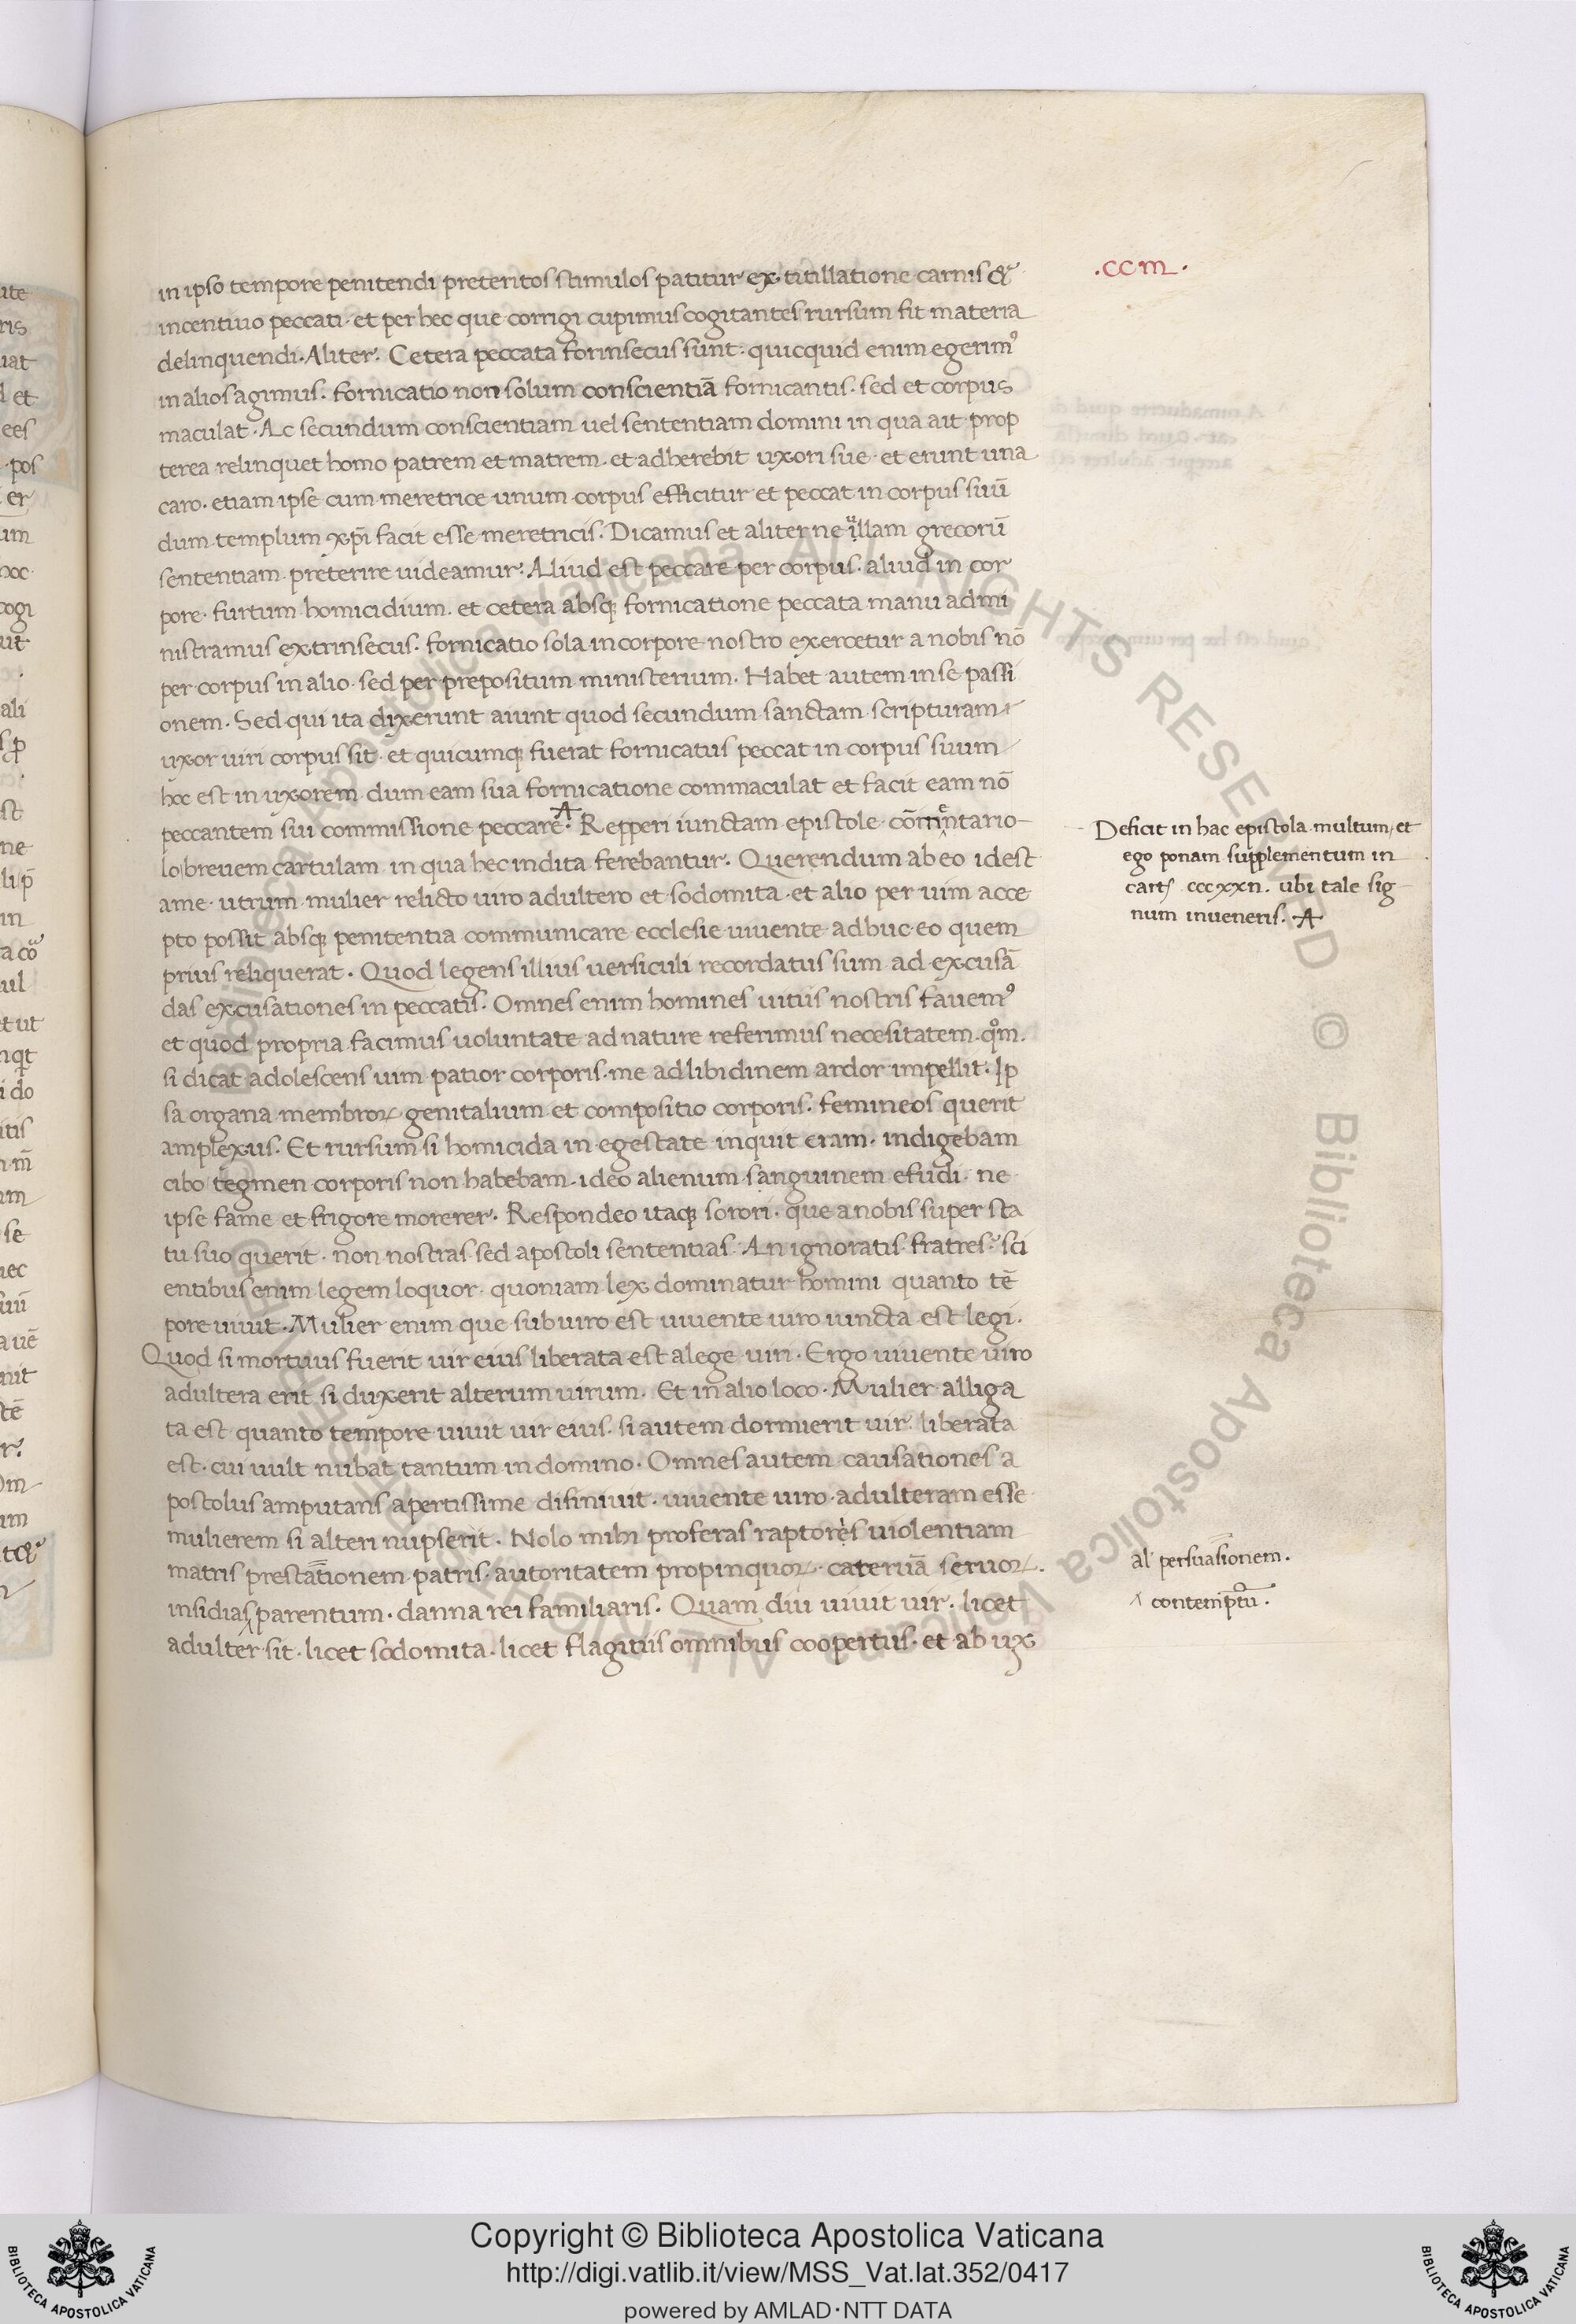 .CCIII.
in ipso tempore penitendi preteritos stimulos patitur ex titillatione carnis &
incentiuo peccati · et per hec que corrigi cupimus cogitantes rursum fit materia
delinquendi · Aliter. Cetera peccata forinsecus sunt · quicquid enim egerimꝰ
in alios agimus. fornicatio non solum conscientiā fornicantis. sed et corpus
maculat · Ac secundum conscientiam uel sententiam domini in qua ait prop
terea relinquet homo patrem et matrem. et adherebit uxori sue · et erunt una
caro. etiam ipse cum meretrice unum corpus efficitur et peccat in corpus suū
dum templum xp̄i facit esse meretricis. Dicamus et aliter ne illam grecorū
sententiam preterire uideamur. Aliud est peccare per corpus. aliud in cor
pore. furtum homicidium. et cetera absqꝫ fornicatione peccata manu admi
nistramus extrinsecus. fornicatio sola in corpore nostro exercetur a nobis nō
per corpus in alio · sed per prepositum ministerium. Habet autem in se passi
onem. Sed qui ita dixerunt aiunt quod secundum sanctam scripturam
uxor uiri corpus sit · et quicumqꝫ fuerat fornicatus peccat in corpus suum
hoc est in uxorem dum eam sua fornicatione commaculat et facit eam nō
peccantem sui commissione peccare. Repperi iunctam epistole cōmentario
lo breuem cartulam in qua hec indita ferebantur. Querendum ab eo idest
a me · utrum mulier relicto uiro adultero et sodomita · et alio per uim acce
pto possit absqꝫ penitentia communicare ecclesie uiuente adhuc eo quem
prius reliquerat. Quod legens illius uersiculi recordatus sum ad excusā
das excusationes in peccatis. Omnes enim homines uitiis nostris fauemꝰ
et quod propria facimus uoluntate ad nature referimus necesitatem. qōm.
si dicat adolescens uim patior corporis. me ad libidinem ardor impellit. Ip
sa organa membroꝝ genitalium et compositio corporis. femineos querit
amplexus. Et rursum si homicida in egestate inquit eram. indigebam
cibo tegmen corporis non habebam. ideo alienum sanguinem efudi · ne
ipse fame et frigore morerer. Respondeo itaqꝫ sorori. que a nobis super sta
tu suo querit · non nostras sed apostoli sententias. An ignoratis fratres. sci
entibus enim legem loquor · quoniam lex dominatur homini quanto tē
pore uiuit. Mulier enim que sub uiro est uiuente uiro uincta est legi.
Quod si mortuus fuerit uir eius liberata est a lege uiri. Ergo uiuente uiro
adultera erit si duxerit alterum uirum. Et in alio loco. Mulier alliga
ta est quanto tempore uiuit uir eius. si autem dormierit uir liberata
est · cui uult nubat tantum in domino. Omnes autem causationes a
postolus amputans apertissime difiniuit · uiuente uiro adulteram esse
mulierem si alteri nupserit. Nolo mihi proferas raptores uiolentiam
matris prestationem patris. autoritatem propinquoꝝ cateruā seruoꝝ.
insidias parentum. danna rei familiaris. Quam diu uiuit uir. licet
adulter sit. licet sodomita. licet flagitiis omnibus coopertus. et ab ux
Deficit in hac epistola multum, et
ego ponam supplementum in
cartꝭ cccxxii. ubi tale sig
num inueneris.
al' persuasionem.
contemptū.
Copyright © Biblioteca Apostolica Vaticana
http://digi.vatlib.it/view/MSS_Vat.lat.352/0417
powered by AMLAD·NTT DATA
BIBLIOTECA APOSTOLICA VATICANA
BIBLIOTECA APOSTOLICA VATICANA